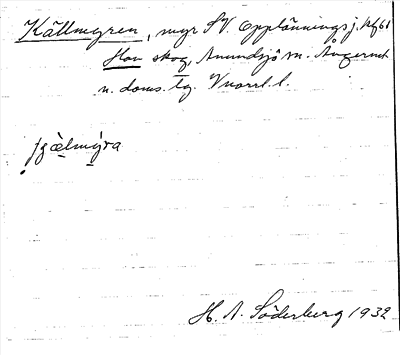 Källmyren, myr SV. Opplänningsj. kfg 61
Hon skog, Anundsjö sn. Ångerml.
n. doms. tg. Vnorrl. l.
H. A. Söderberg 1932